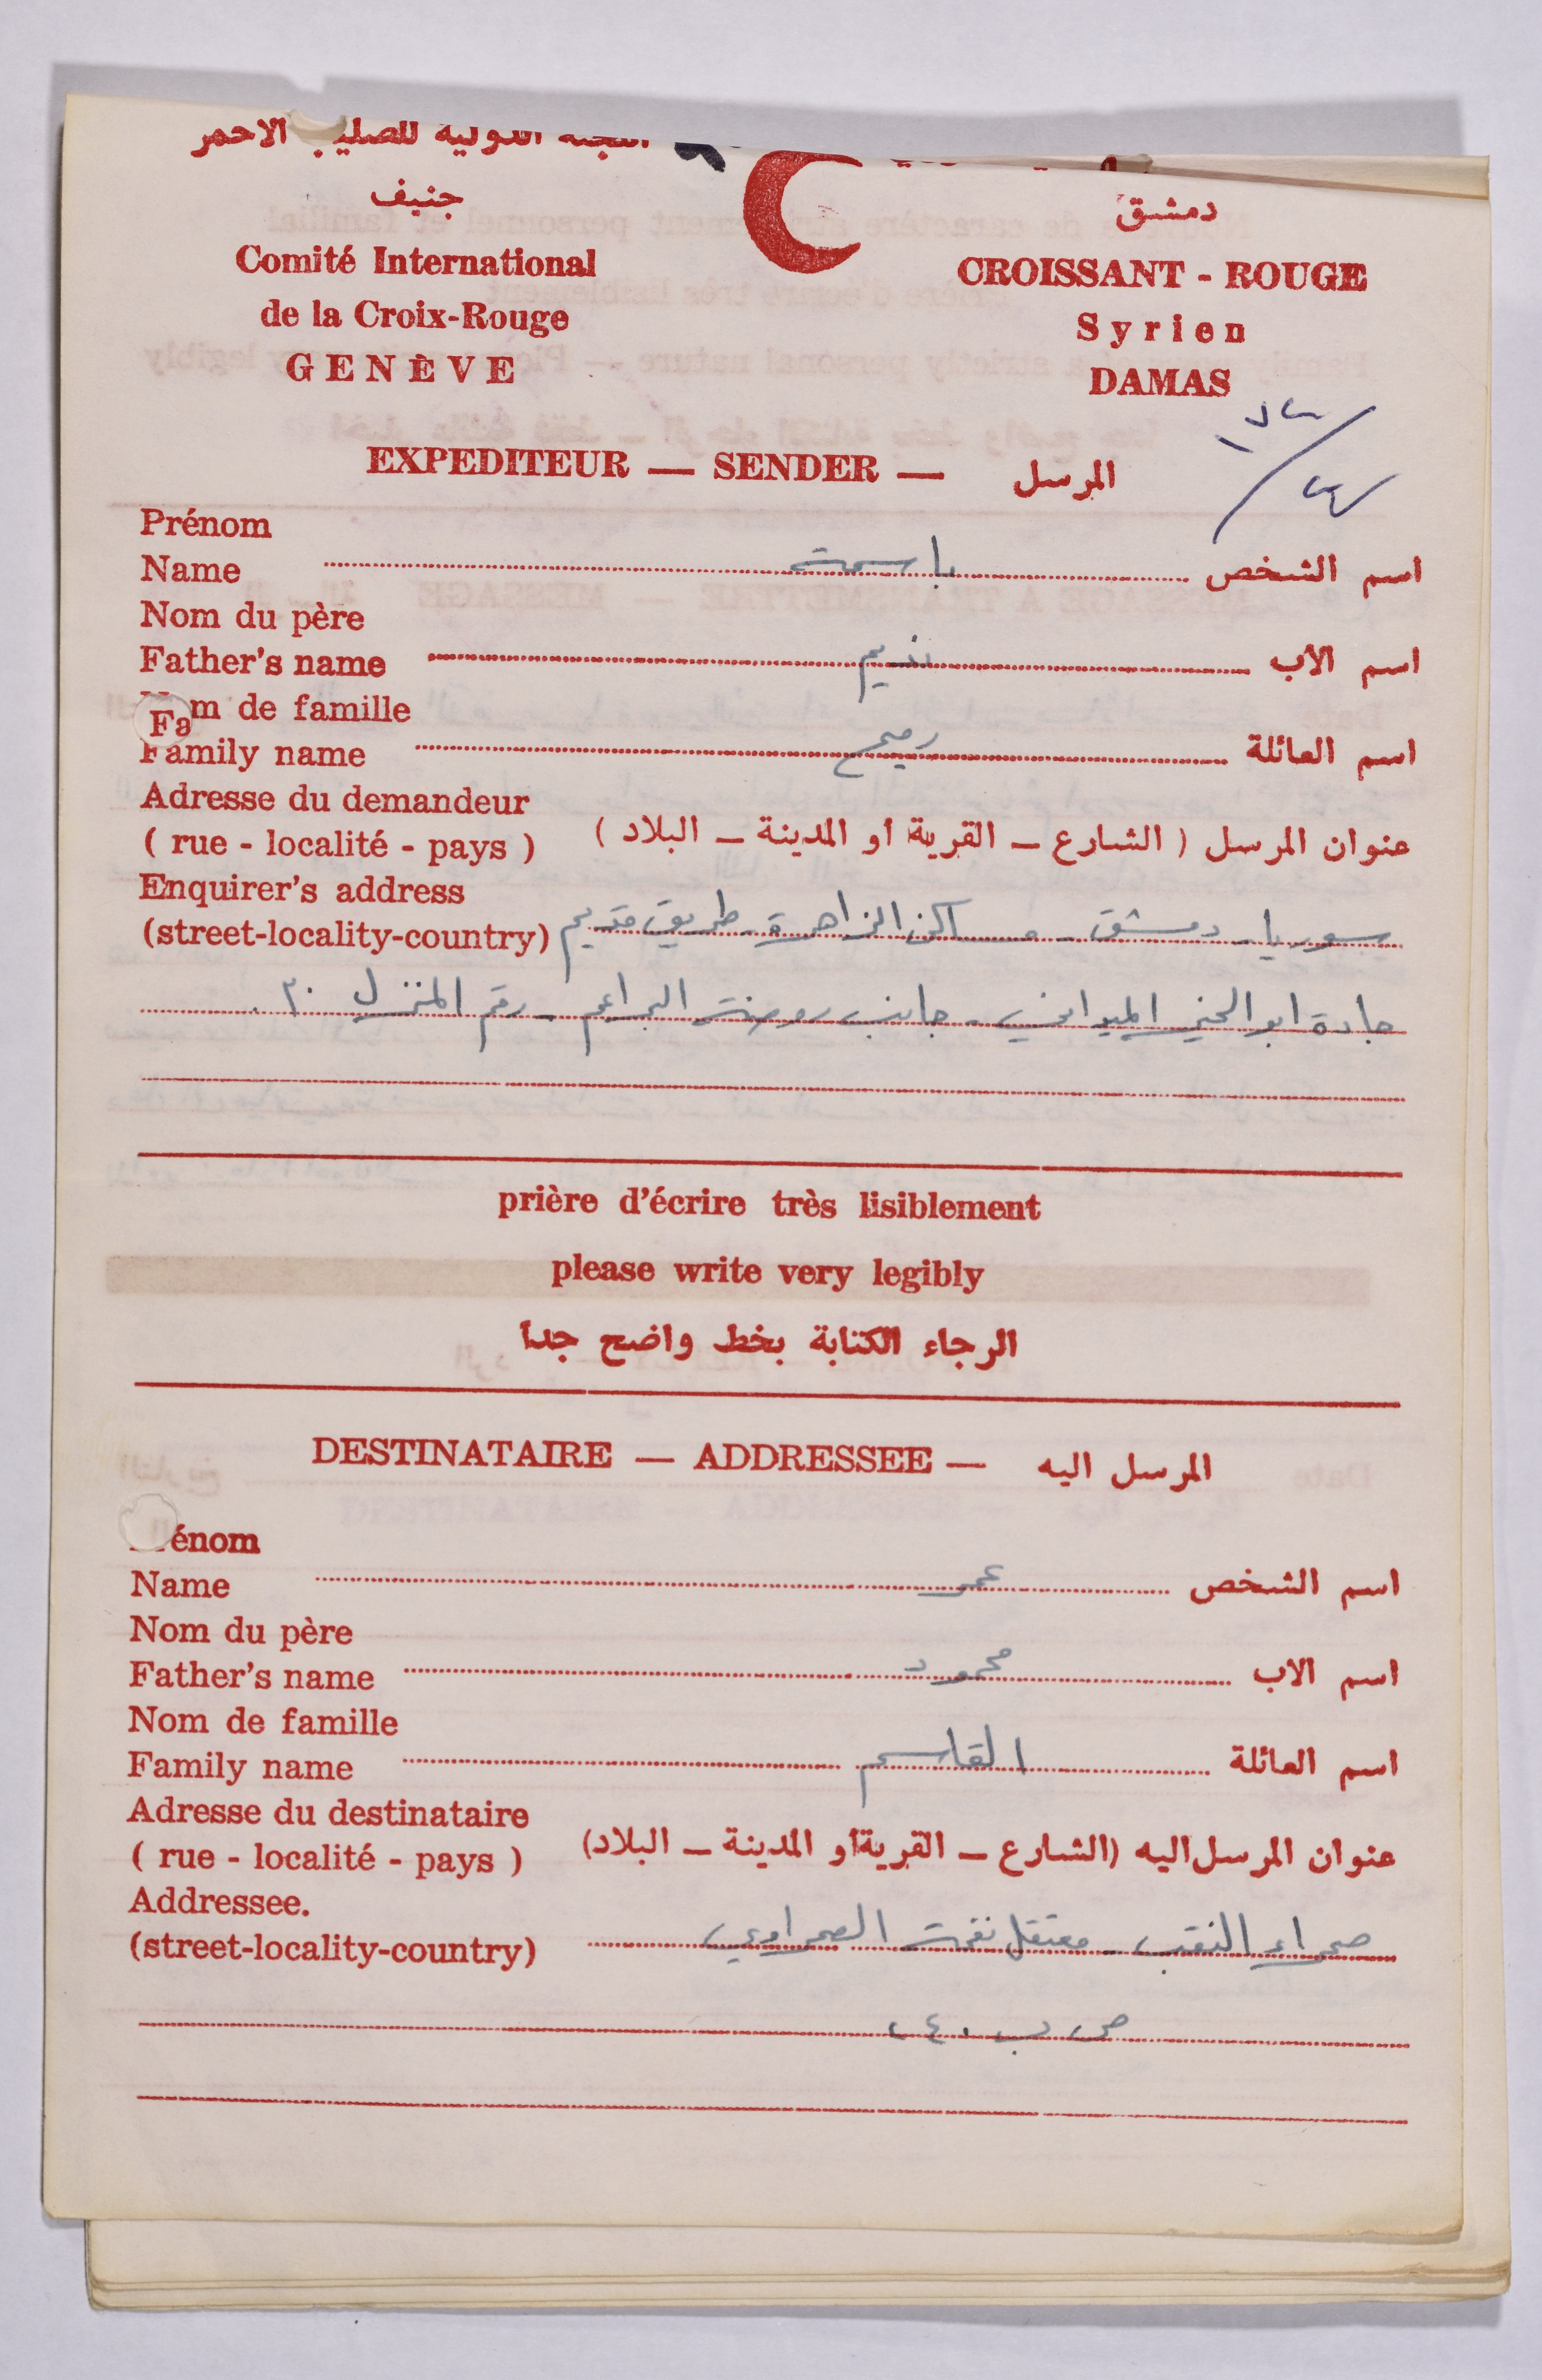 للصليب الاحمر
جنيف
Comité International
de la Croix-Rouge
GENÈVE
دمشق
CROISSANT - ROUGE
Syrien
DAMAS
EXPEDITEUR — SENDER — المرسل
Prénom
Name باسمة اسم الشخص
Nom du père
Father's name نديم اسم الاب
Nom de famille
Fa
Family name اسم العائلة
Adresse du demandeur
( rue - localité - pays ) عنوان المرسل ( الشارع – القرية او المدينة – البلاد )
Enquirer's address
(street-locality-country) سوريا - دمشق - مساكن الزاهرة - طريق قديم
جادة ابو الخير الميداني - جانب روضة البراعم - رقم المنزل ٣٠
prière d'écrire très lisiblement
please write very legibly
الرجاء الكتابة بخط واضح جدا
DESTINATAIRE — ADDRESSEE — المرسل اليه
énom
Name عمر اسم الشخص
Nom du père
Father's name محمود اسم الاب
Nom de famille
Family name القاسم اسم العائلة
Adresse du destinataire
( rue - localité - pays ) عنوان المرسل اليه (الشارع – القرية او المدينة – البلاد)
Addressee.
(street-locality-country) صحراء النقب - معتقل الصحراوي
ص ب